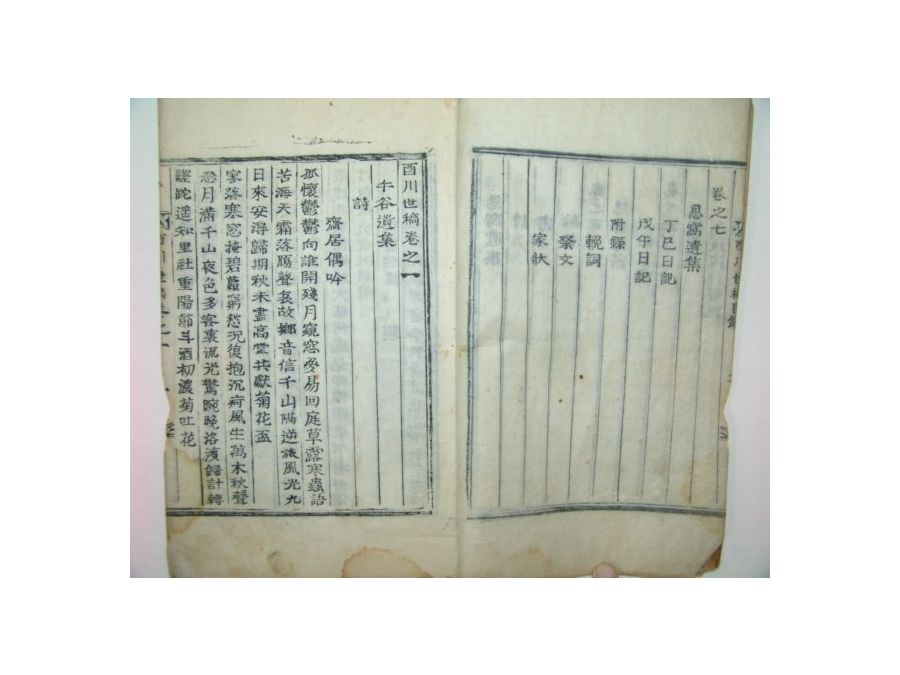 卷之七
忍窩遺集
丁巳日記
戊午日記
附錄
輓詞
祭文
家狀
酉川世稿卷之一
午谷遺集
詩
齋居偶吟
孤懷鬱鬱向誰開殘月窺窓夢易回庭草露寒蟲語
苦海天霜落鴈聲哀故鄉音信千山隔逆旅風光九
日來安得歸期秋未盡高堂共獻菊花盃
寥落寒窓掩碧蘿窮愁况復抱沉疴風生萬木秋聲
急月滿千山夜色多客裏流光驚晼晚洛濱歸計轉
蹉跎遥知里社重陽節斗酒初濃菊吐花